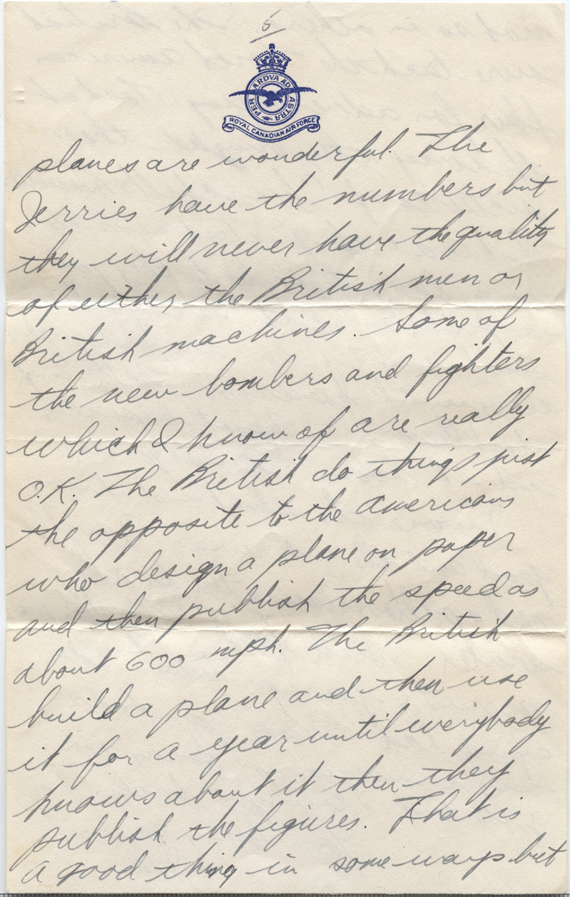 5
PER ARDVA AD ASTRA
ROYAL CANADIAN AIR FORCE
planes are wonderful. The
Jerries have the numbers but
they will never have the quality
of either the British men or
British machines. Some of
the new bombers and fighters
which I know of are really
O.K. The British do things just
the opposite to the americans
who design a plane on paper
and then publish the speed as
about 600 mph. The British
build a plane and then use
it for a year until everybody
knows about it then they
publish the figures. That is
a good thing in some ways but